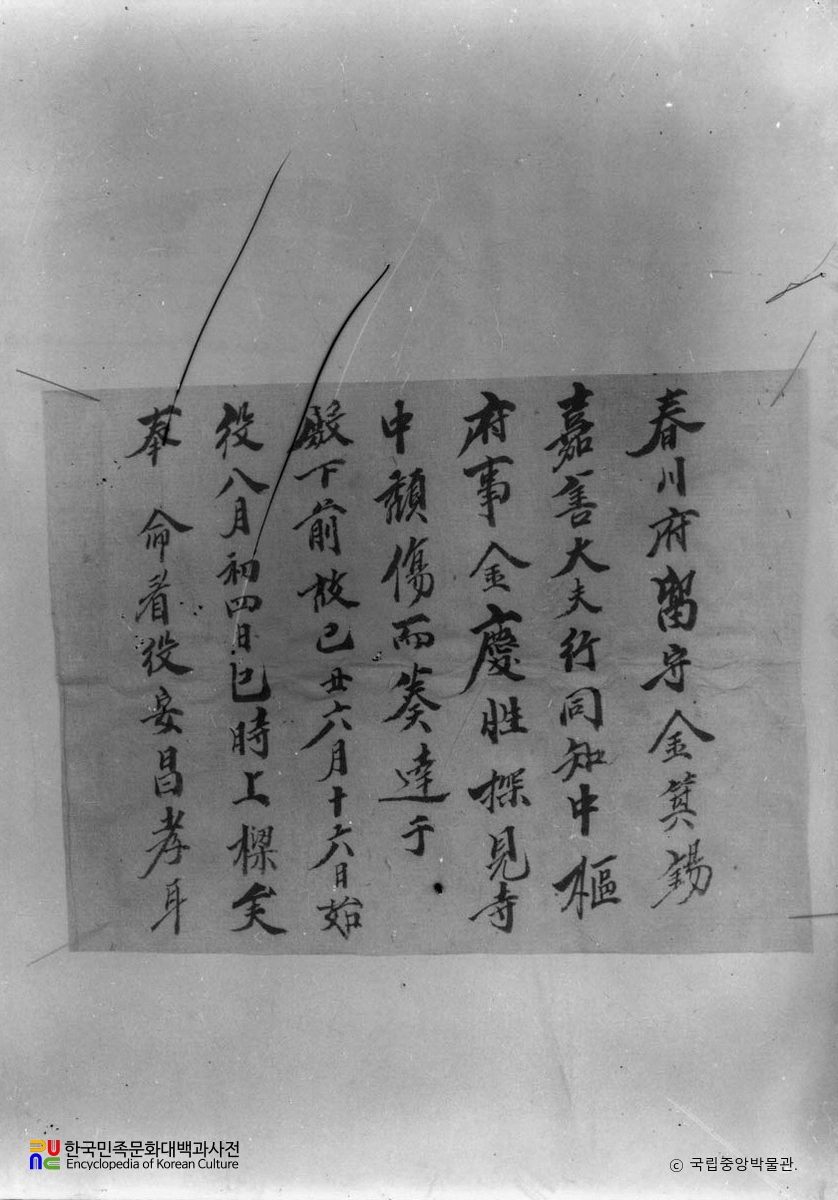 春川府留守金箕錫
嘉善大夫行同知中樞
府事金慶胜探見寺
中頹傷而奏達于
殿下前故己丑六月十六日始
役八月初四日巳時上樑矣
奉 命看役安昌孝耳
한국민족문화대백과사전
Encyclopedia of Korean Culture
ⓒ 국립중앙박물관.